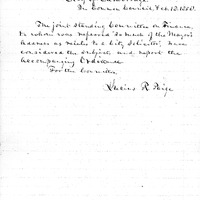 City of Cambridge.
In Common Council, Feb. 12. 1850.
The Joint Standing Committee on Finance,
to whom was referred "so much of the Mayor's
Address as relates to a City Solicitor," have
considered the subject, and report the
accompanying Ordinance.
For the Committee,
Lucius R. Paige